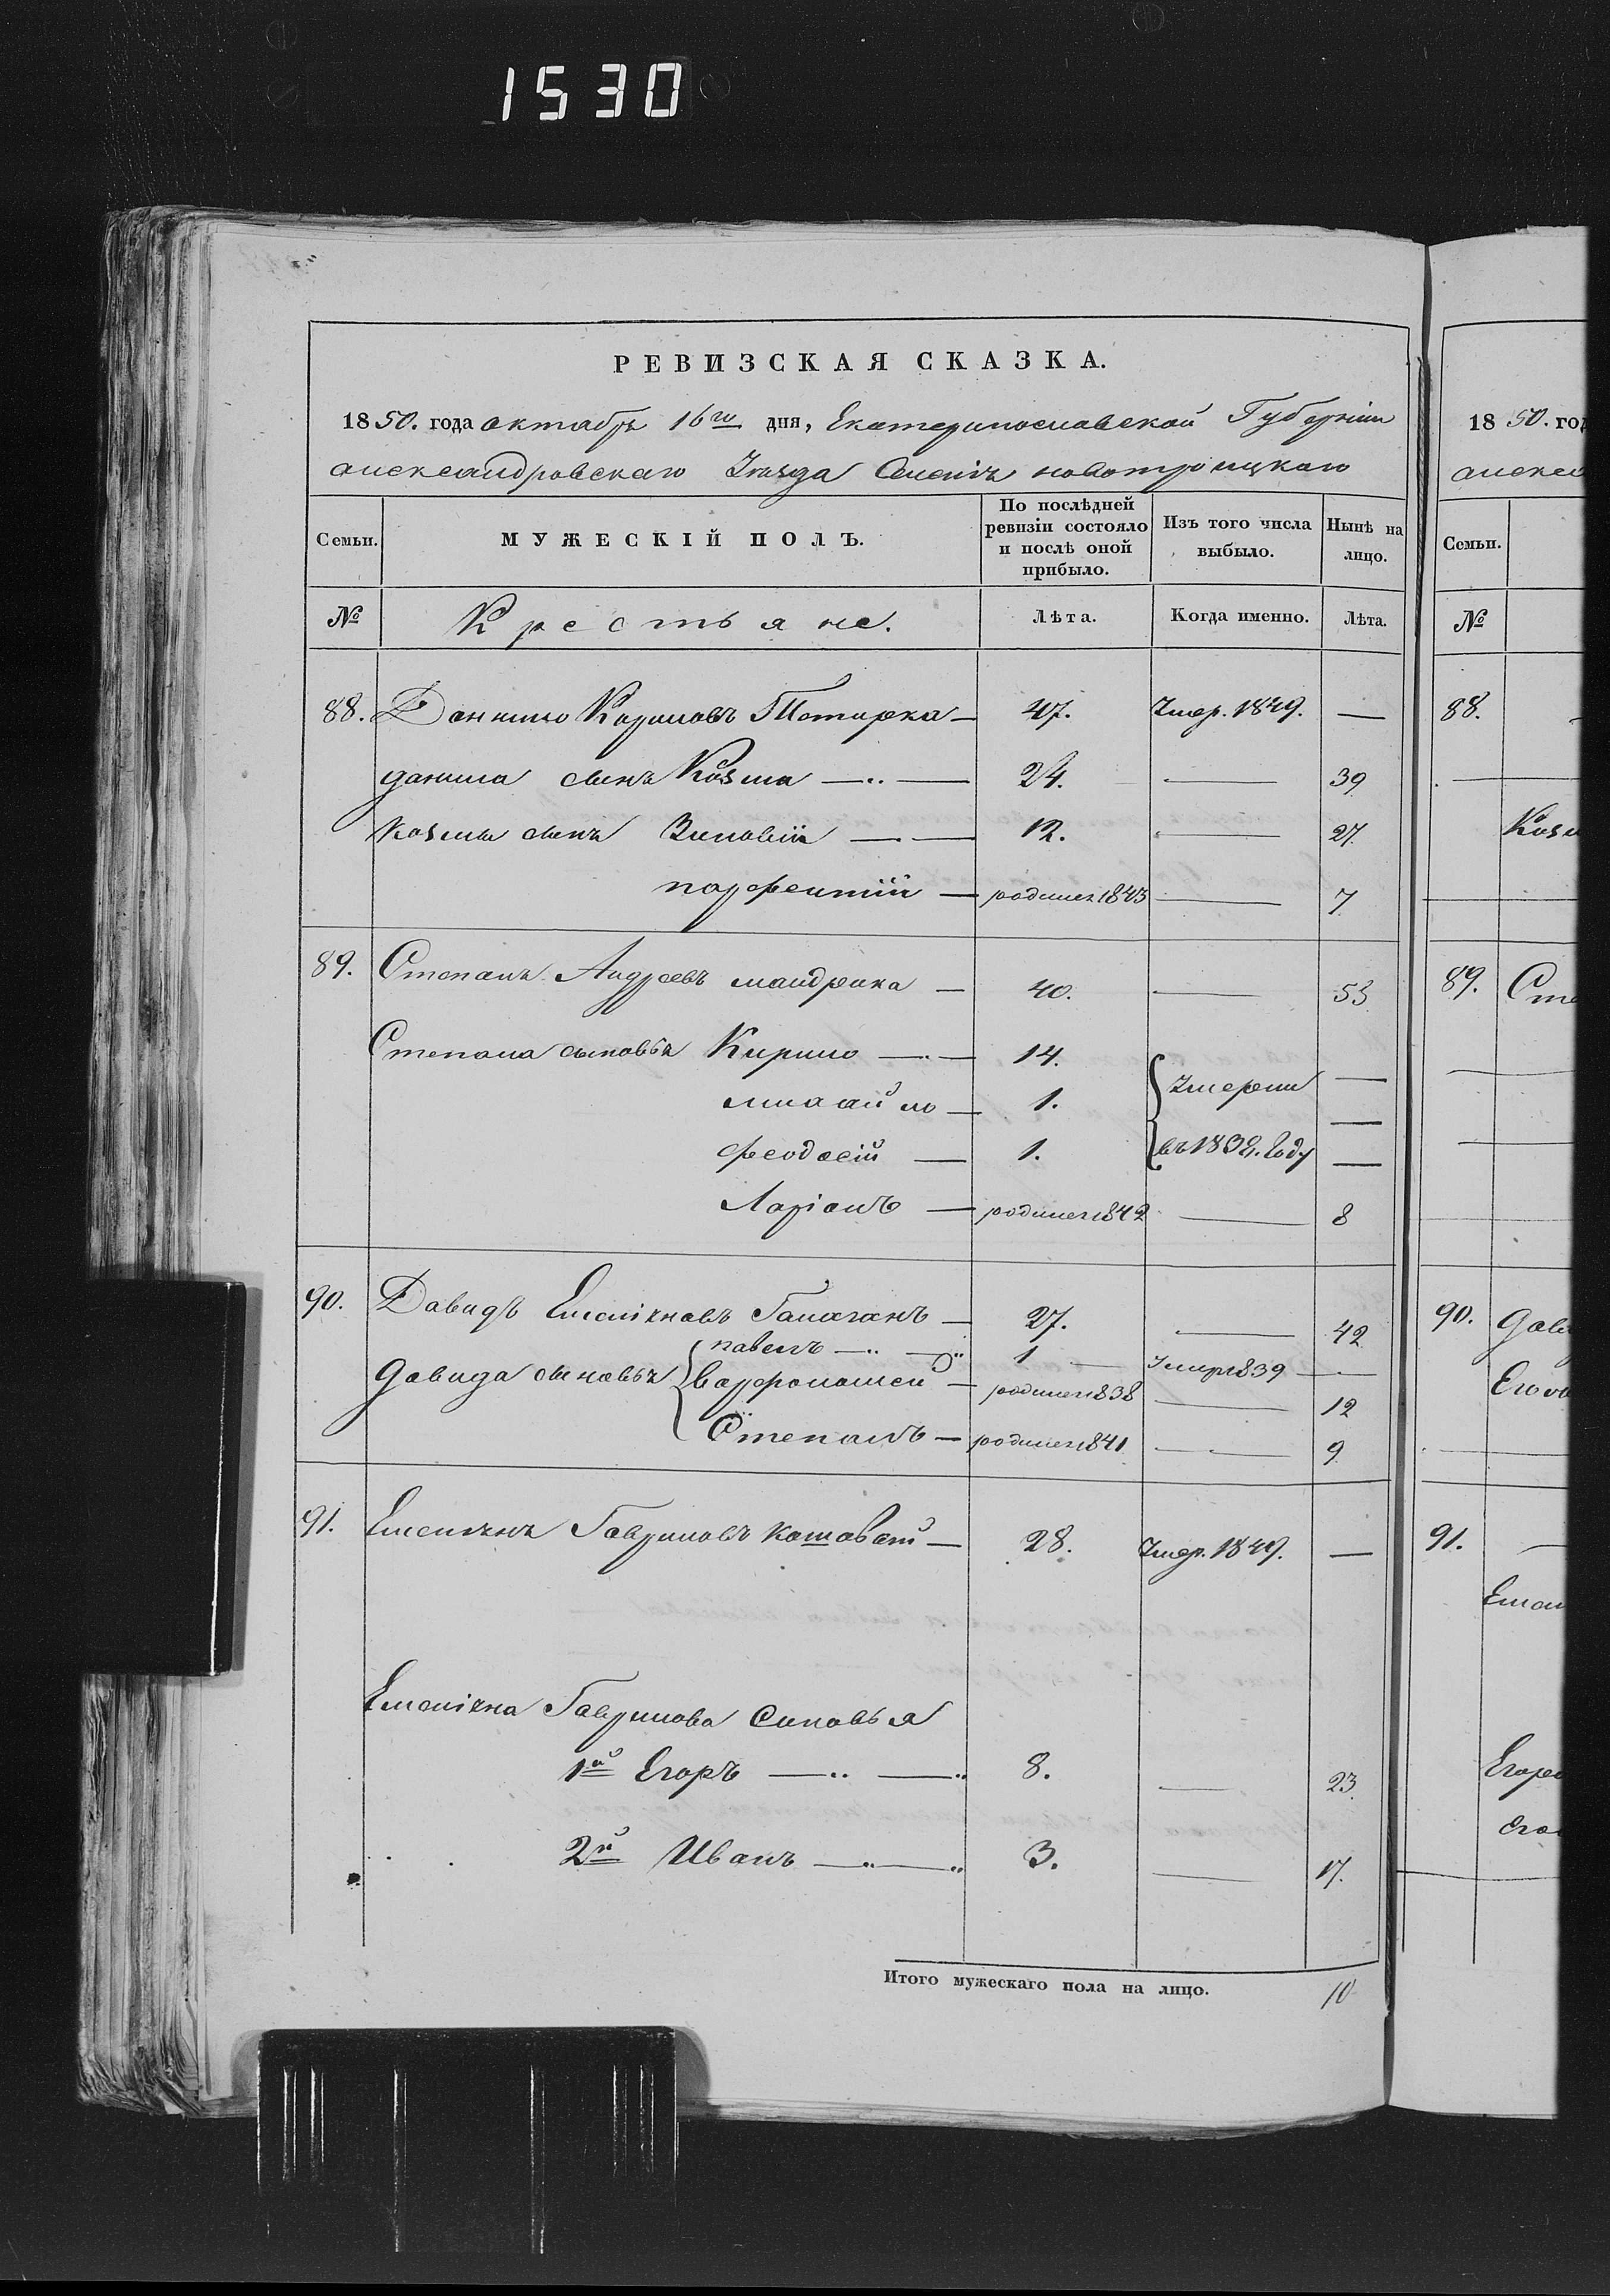 1530
РЕВИЗСКАЯ СКАЗКА.
1850. года октабря 16го дня, Екатеринославской Губерніи
александровскаго Уѣзда Селенія новотроицкаго
Семьи.
МУЖЕСКІЙ ПОЛЪ.
По послѣдней ревизіи состояло и послѣ оной прибыло.
Изъ того числа выбыло.
Нынѣ на лицо.
№
Крестьяне.
Лѣта.
Когда именно.
Лѣта.
88. Данило Кириловъ 47. Умер. 1849. —
данила сынъ Козма — 24. — 39
Козмы сынъ Зиновій — 12. — 27
парфентій — родился 1843 — 7
89. Степанъ Андреевъ мандрика — 40. — 53
Степана сыновья Кирило — 14. Умерли —
михайло — 1. —
феодосій — 1. въ 1838. году —
Ларіонъ — родился 1842 — 8
90. Давидъ Емеліяновъ Галаганъ — 27. — 42
павелъ — 1 — Умер 1839 —
Давида сыновья Варфоломей — родился 1838 — 12
Степанъ — родился 1841 — 9
91. Емельянъ Гавриловъ Кошовой — 28. Умер. 1849. —
Емеліяна Гаврилова Синовья
1й Егоръ — 8. — 23.
2й Иванъ — 3. — 17.
Итого мужескаго пола на лицо. 10
18 50. год
алекса
Семьи.
№
88.
Козм
89. Сте
90. Дави
Его
91.
Емел
Егора
Его